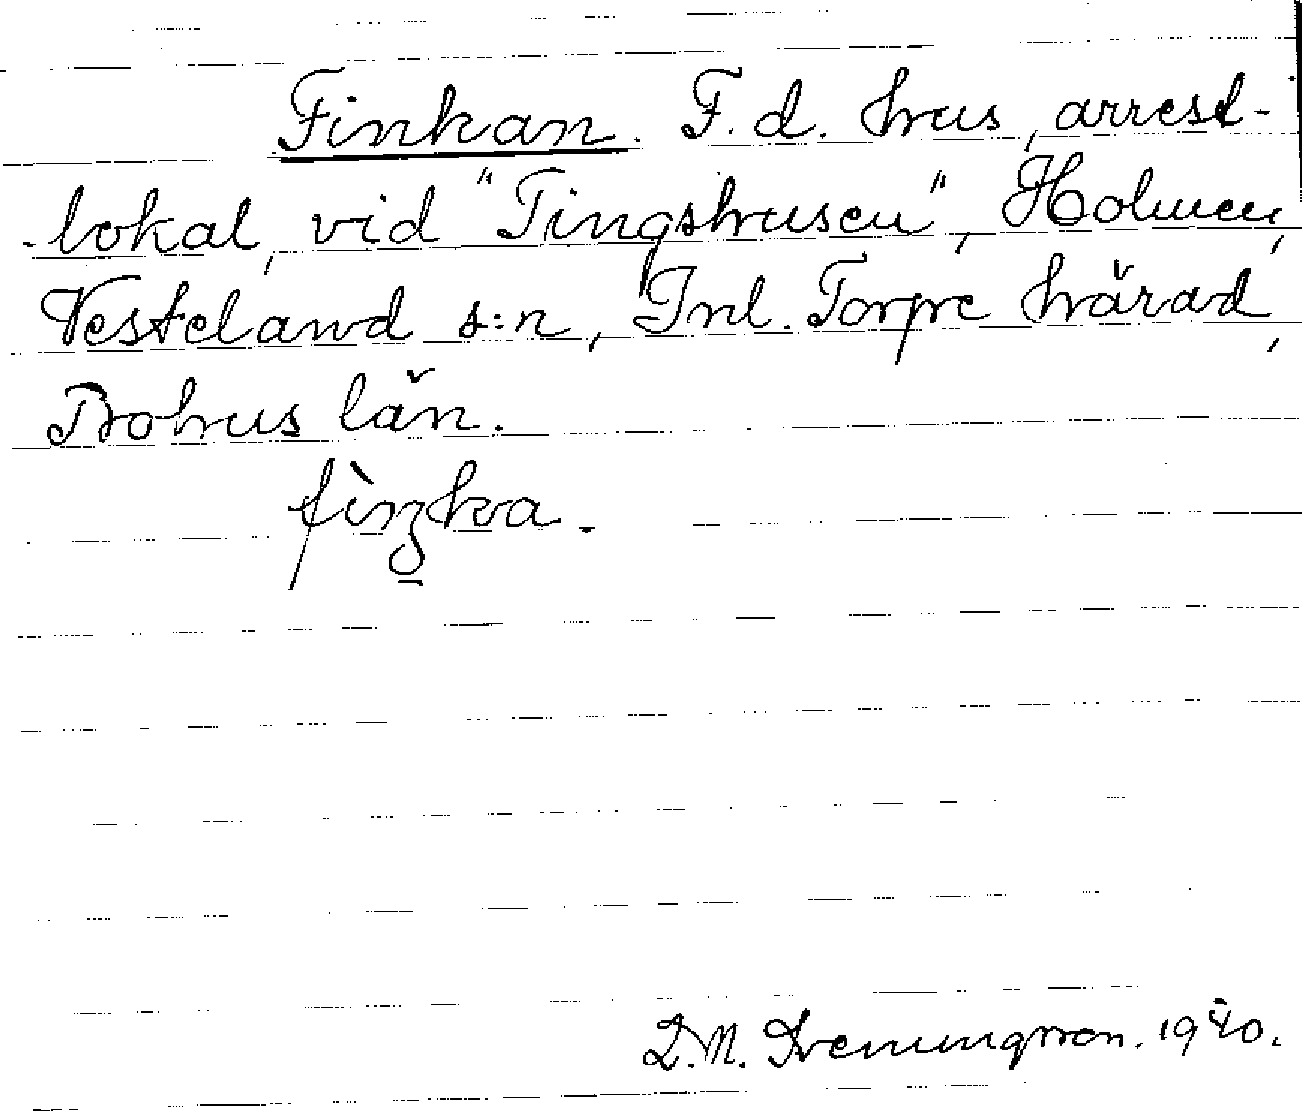 Finkan. F. d. hus, arrest-
-lokal, vid "Tingshusen", Holmen,
Vesteland s:n, Inl. Torpe härad,
Bohus län.
fìŋka.
1940.